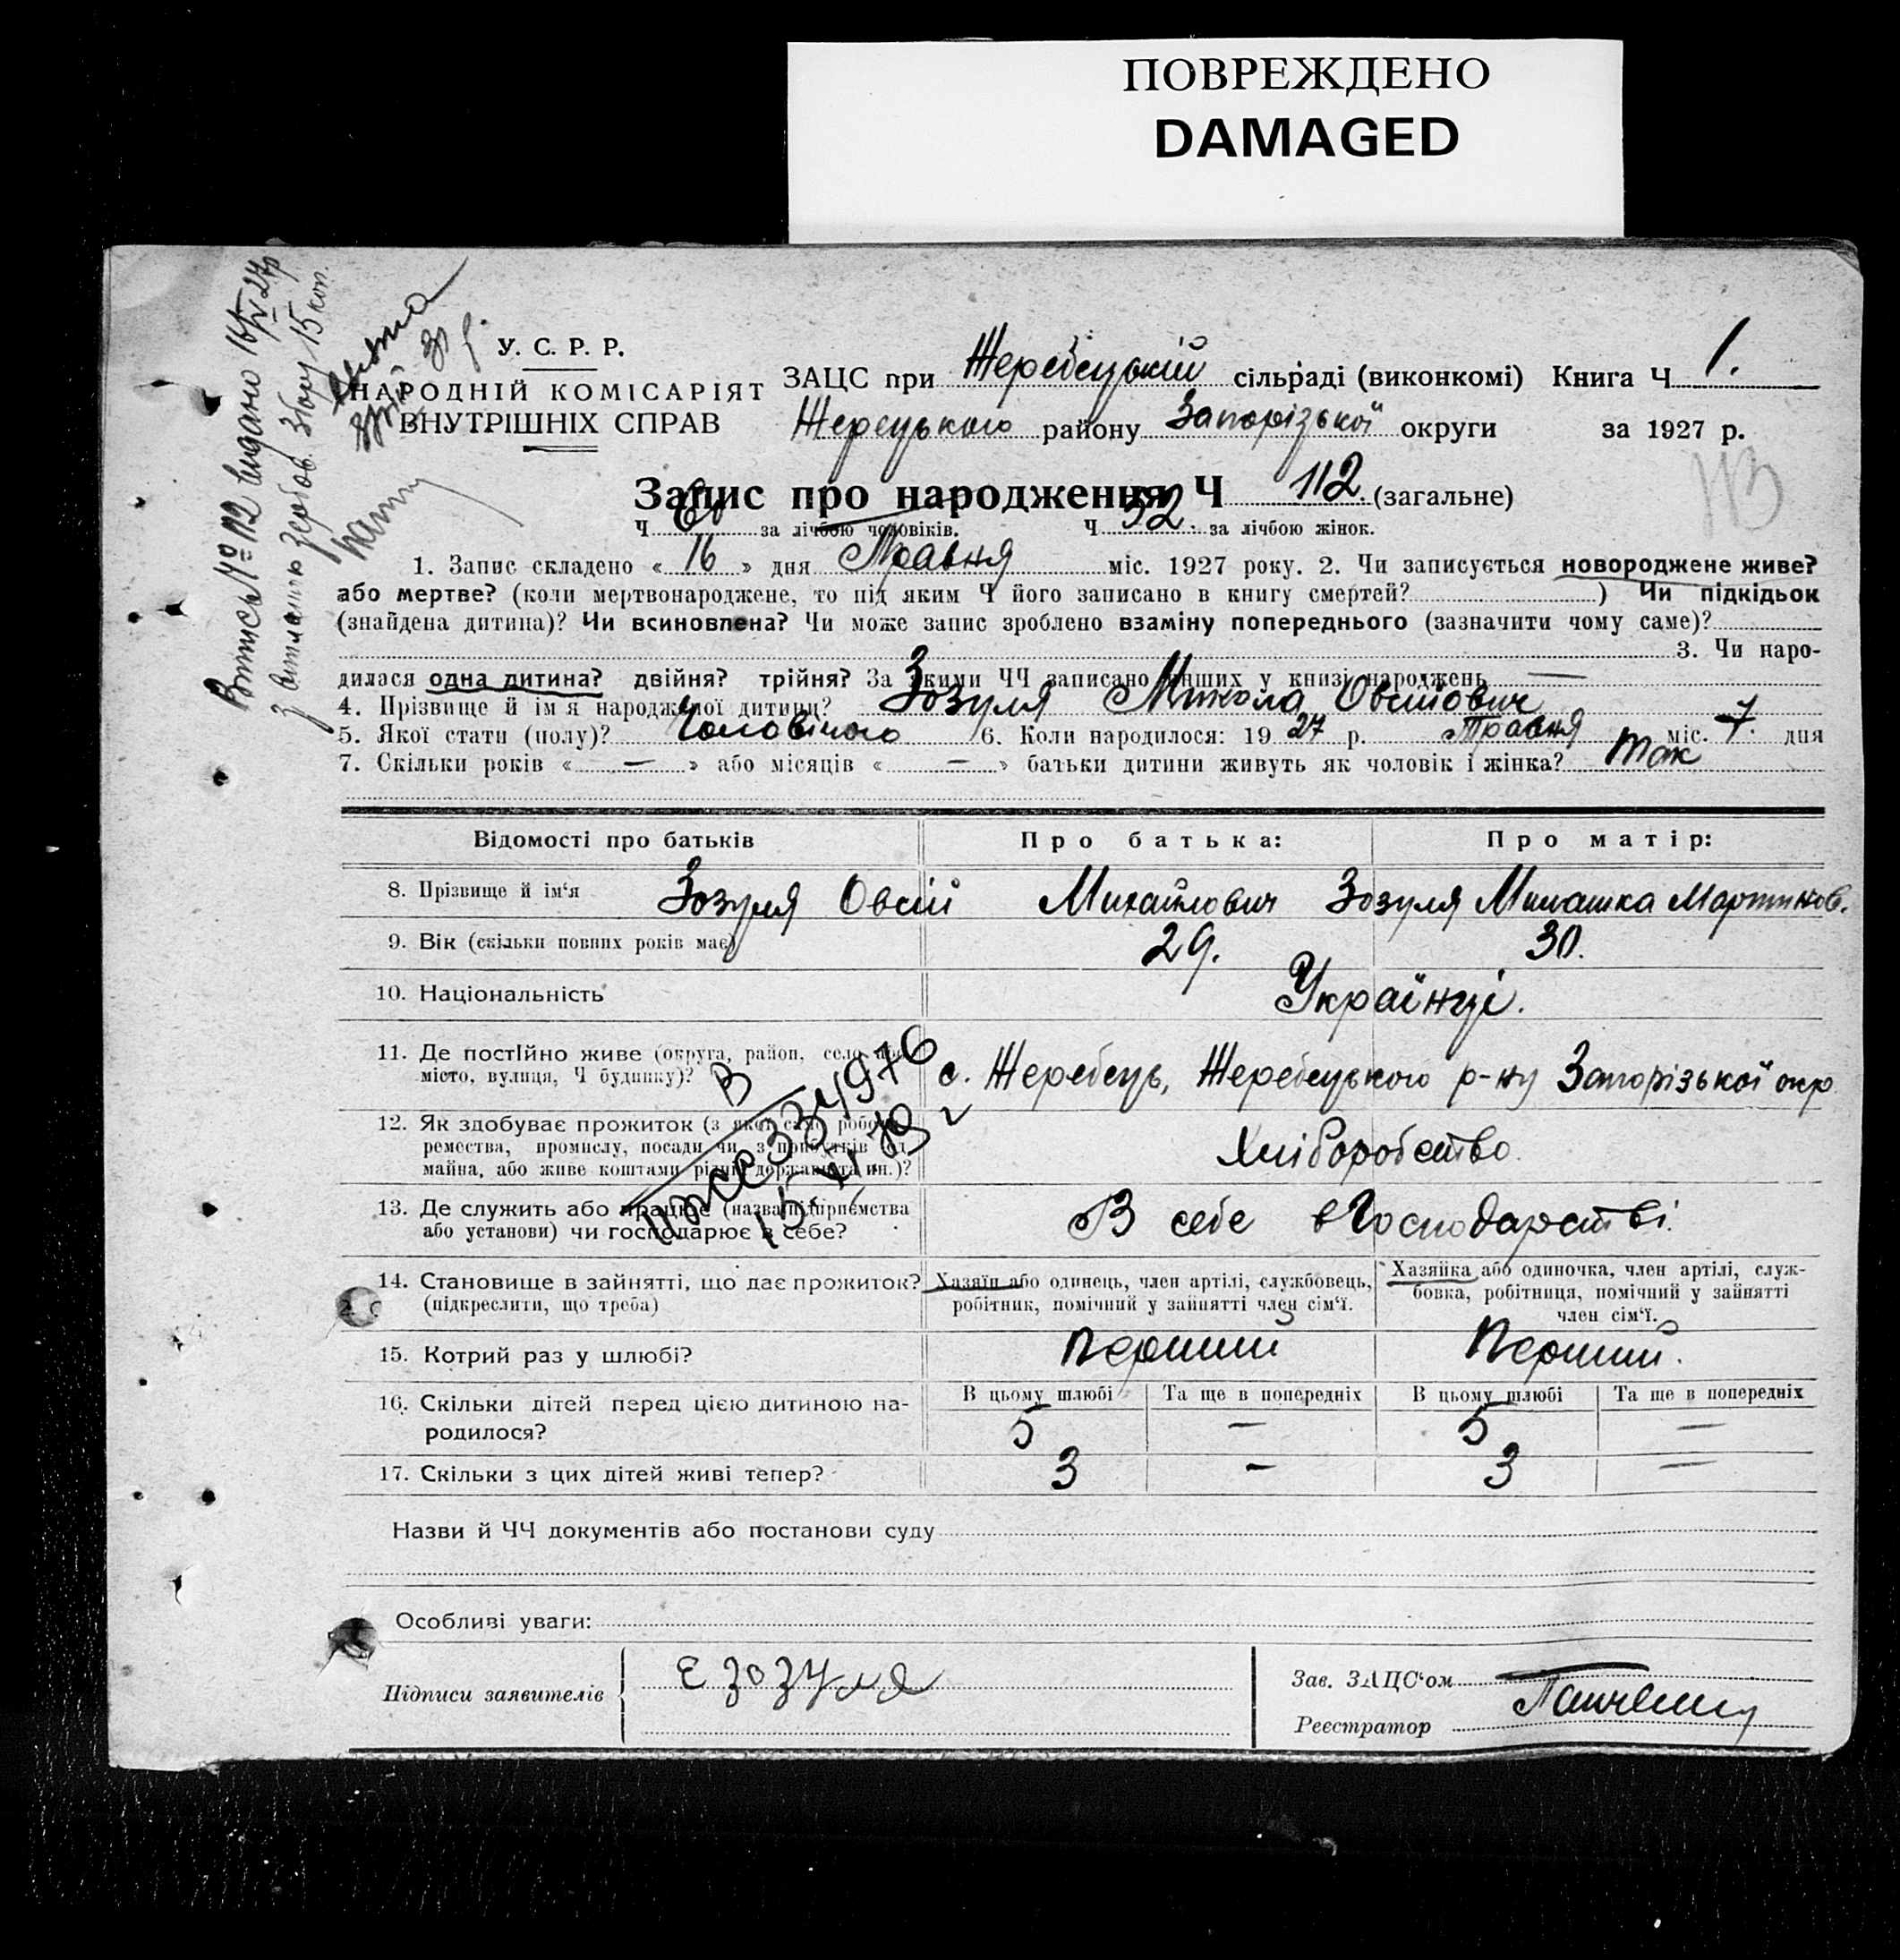 ПОВРЕЖДЕНО
DAMAGED
У. С. Р. Р.
НАРОДНІЙ КОМІСАРІЯТ
ВНУТРІШНІХ СПРАВ
Витись № 112 видано 16/V 27р
збору 15 коп.
ЗАЦС при Жеребецькій сільраді (виконкомі) Книга Ч 1.
Жерецького району Запорізької округи за 1927 р.
Запис про народження Ч 112. (загальне)
Ч 60 за лічбою чоловіків. Ч 52. за лічбою жінок.
1. Запис складено « 16 » дня Травня міс. 1927 року. 2. Чи записується новороджене живе?
або мертве? (коли мертвонароджене, то під яким Ч його записано в книгу смертей? ) Чи підкідьок
(знайдена дитина)? Чи всиновлена? Чи може запис зроблено взаміну попереднього (зазначити чому саме)?
3. Чи наро-
дилася одна дитина? двійня? трійня? За якими ЧЧ записано інших у книзі народжень —
4. Прізвище й ім'я народженої дитини? Зозуля Микола Овсійович
5. Якої стати (полу)? Чоловічого 6. Коли народилося: 19 27 р. Травня міс. 7. дня
7. Скільки років « — » або місяців « — » батьки дитини живуть як чоловік і жінка? Так
Відомості про батьків Про батька: Про матір:
8. Прізвище й ім'я Зозуля Овсій Михайлович Зозуля Милашка Мартинов.
9. Вік (скільки повних років має) 29. 30.
10. Національність Українці.
11. Де постійно живе (округа, район, село або
місто, вулиця, Ч будинку)? с. Жеребець, Жеребецького р-ну Запорізької окр
12. Як здобуває прожиток (з якої саме роботи,
ремества, промислу, посади чи з прибутків од
майна, або живе коштами рідні, держави та ин.)? Хліборобство.
13. Де служить або працює (назва підприємства
або установи) чи господарює в себе? В себе в Господарстві.
14. Становище в зайнятті, що дає прожиток?
(підкреслити, що треба)
Хазяїн або одинець, член артілі, службовець,
робітник, помічний у зайнятті член сім'ї.
Хазяйка або одиночка, член артілі, служ-
бовка, робітниця, помічний у зайнятті
член сім'ї.
15. Котрий раз у шлюбі? перший Перший.
16. Скільки дітей перед цією дитиною на-
родилося?
В цьому шлюбі Та ще в попередніх В цьому шлюбі Та ще в попередніх
5 — 5 —
17. Скільки з цих дітей живі тепер? 3 — 3 —
Назви й ЧЧ документів або постанови суду
Особливі уваги:
Підписи заявителів Е Зозуля
Зав. ЗАЦС'ом
Реєстратор